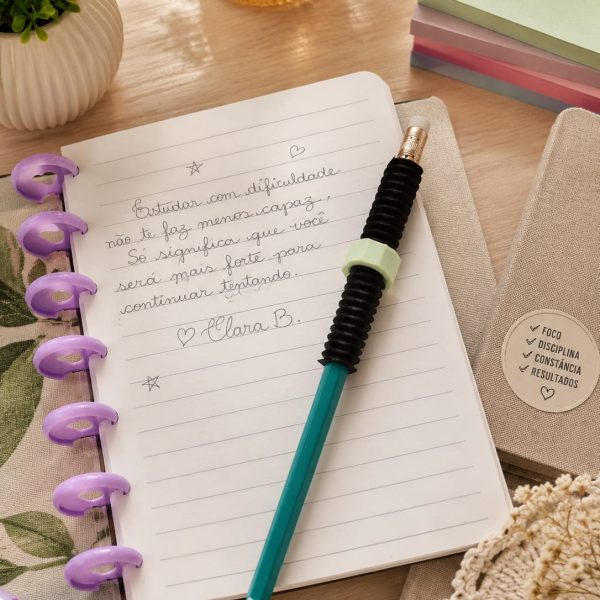 Estudar com dificuldade
não te faz menos capaz,
Só significa que você
será mais forte para
continuar tentando.
♡ Clara B.
✓ FOCO
✓ DISCIPLINA
✓ CONSTÂNCIA
✓ RESULTADOS